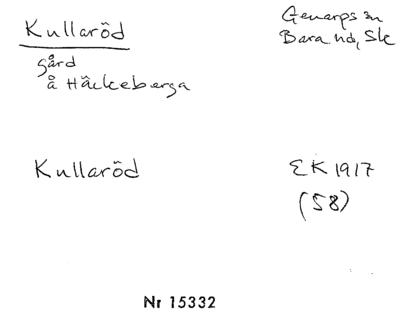 Kullaröd
Genarps sn
Bara hd, Sk
gård
å Häckeberga
Kullaröd
EK 1917
(58)
Nr 15332